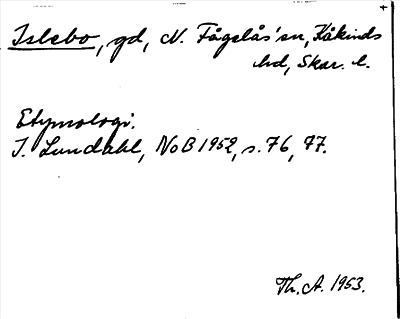 Islebo, gd, N. Fågelås'sn, Kåkinds
hd, Skar. l.
Etymologi.
I. Lundahl, NoB 1952, s. 76, 77.
Th. A. 1953.